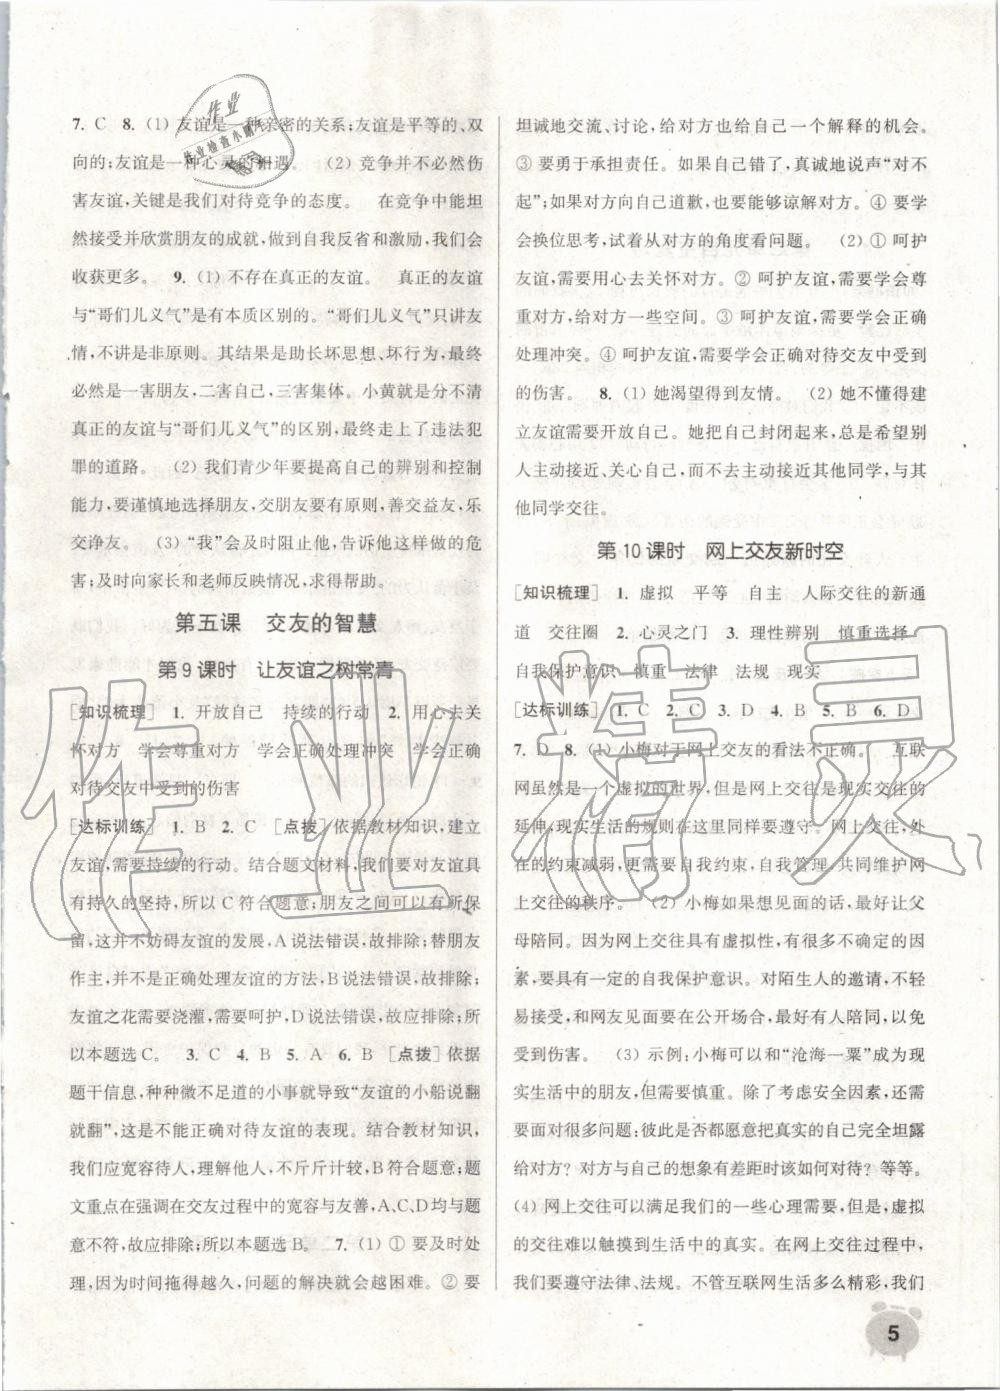 7. C 8. (1) 友谊是一种亲密的关系;友谊是平等的、双
向的;友谊是一种心灵的相遇。 (2) 竞争并不必然伤
害友谊,关键是我们对待竞争的态度。 在竞争中能坦
然接受并欣赏朋友的成就,做到自我反省和激励,我们会
收获更多。 9. (1) 不存在真正的友谊。 真正的友谊
与“哥们儿义气”是有本质区别的。“哥们儿义气”只讲友
情,不讲是非原则。其结果是助长坏思想、坏行为,最终
必然是一害朋友,二害自己,三害集体。小黄就是分不清
真正的友谊与“哥们儿义气”的区别,最终走上了违法犯
罪的道路。 (2) 我们青少年要提高自己的辨别和控制
能力,要谨慎地选择朋友,交朋友要有原则,善交益友,乐
交诤友。 (3) “我”会及时阻止他,告诉他这样做的危
害;及时向家长和老师反映情况,求得帮助。
第五课 交友的智慧
第 9 课时 让友谊之树常青
[知识梳理] 1. 开放自己 持续的行动 2. 用心去关
怀对方 学会尊重对方 学会正确处理冲突 学会正确
对待交友中受到的伤害
[达标训练] 1. B 2. C [点拨]依据教材知识,建立
友谊,需要持续的行动。结合题文材料,我们要对友谊具
有持久的坚持,所以 C 符合题意;朋友之间可以有所保
留,这并不妨碍友谊的发展,A 说法错误,故排除;替朋友
作主,并不是正确处理友谊的方法,B 说法错误,故排除;
友谊之花需要浇灌,需要呵护,D 说法错误,故应排除;所
以本题选 C。 3. C 4. B 5. A 6. B [点拨]依据
题干信息,种种微不足道的小事就导致“友谊的小船说翻
就翻”,这是不能正确对待友谊的表现。结合教材知识,
我们应宽容待人,理解他人,不斤斤计较,B 符合题意;题
文重点在强调在交友过程中的宽容与友善,A、C、D 均与题
意不符,故应排除;所以本题选 B。 7. (1) ① 要及时处
理,因为时间拖得越久,问题的解决就会越困难。② 要
坦诚地交流、讨论,给对方也给自己一个解释的机会。
③ 要勇于承担责任。如果自己错了,真诚地说声“对不
起”;如果对方向自己道歉,也要能够谅解对方。④ 要学
会换位思考,试着从对方的角度看问题。 (2) ① 呵护
友谊,需要用心去关怀对方。② 呵护友谊,需要学会尊
重对方,给对方一些空间。③ 呵护友谊,需要学会正确
处理冲突。④ 呵护友谊,需要学会正确对待交友中受到
的伤害。 8. (1) 她渴望得到友情。 (2) 她不懂得建
立友谊需要开放自己。她把自己封闭起来,总是希望别
人主动接近、关心自己,而不去主动接近其他同学,与其
他同学交往。
第 10 课时 网上交友新时空
[知识梳理] 1. 虚拟 平等 自主 人际交往的新通
道 交往圈 2. 心灵之门 3. 理性辨别 慎重选择
自我保护意识 慎重 法律 法规 现实
[达标训练] 1. C 2. C 3. D 4. B 5. B 6. D
7. D 8. (1) 小梅对于网上交友的看法不正确。 互联
网虽然是一个虚拟的世界,但是网上交往是现实交往的
延伸,现实生活的规则在这里同样要遵守。网上交往,外
在的约束减弱,更需要自我约束,自我管理,共同维护网
上交往的秩序。 (2) 小梅如果想见面的话,最好让父
母陪同。因为网上交往具有虚拟性,有很多不确定的因
素,要有一定的自我保护意识。对陌生人的邀请,不要轻
易接受,和网友见面要在公开场合,最好有人陪同,以免
受到伤害。 (3) 示例;小梅可以和“沧海一粟”成为现
实生活中的朋友,但需要慎重。除了考虑安全因素,还
要面对一些问题;彼此是否都愿意把真实的自己完全坦露
给对方?对方与自己的想象有差距时该如何对待?等等。
(4) 网上交往可以满足我们的一些心理需要,但是,虚拟
的交往难以触摸到生活中的真实。在网上交往过程中,
我们要遵守法律、法规。不管互联网生活多么精彩,我们
5
作业
作业检查小助手
作业精灵